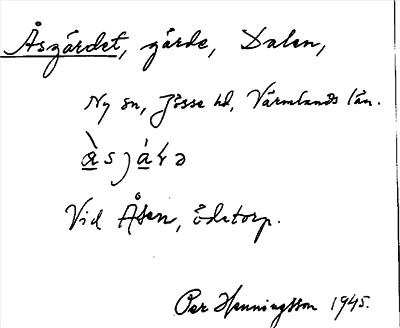 Åsgärdet, gärde, Dalen,
Ny sn, Jösse hd, Värmlands län.
Vid Åsen, ödetorp.
Per Henningsson 1945.